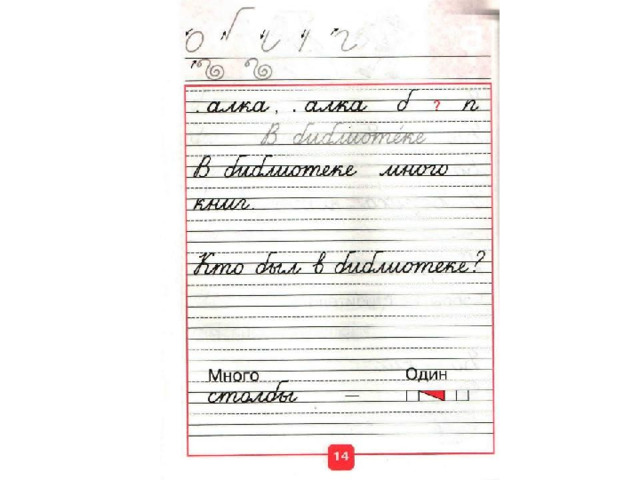 .алка, .алка б ? п
В библиоте́ке
В библиотеке много
книг.
Кто был в библиотеке?
Много Один
столбы —
14